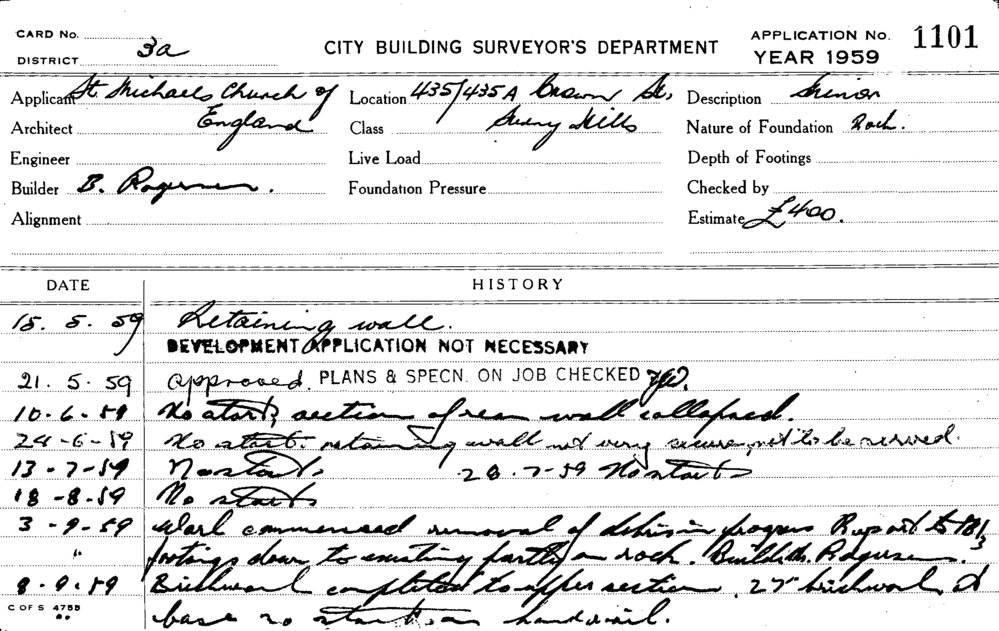 CARD No. 3a
DISTRICT
CITY BUILDING SURVEYOR'S DEPARTMENT
APPLICATION No. 1101
YEAR 1959
Applicant St. Michaels Church of England
Location 435/435A Crown St, Surry Hills
Description Minor
Architect
Class
Nature of Foundation Rock.
Engineer
Live Load
Depth of Footings
Builder B. Rogersen.
Foundation Pressure
Checked by
Alignment
Estimate £400.
DATE HISTORY
15. 5. 59 Retaining wall.
DEVELOPMENT APPLICATION NOT NECESSARY
21. 5. 59 Approved. PLANS & SPECN. ON JOB CHECKED
10-6-59 No start, section of rear wall collapsed.
24-6-59 No start. retaining wall not very secure,
13-7-59 No start 28.7-59 No start
18-8-59 No start
3-9-59 Work commenced removal of debris in progress Report to
" footings down to existing partly on rock. Builder Rogersen.
8-9-59 Brickwork completed to upper section. 27" brickwork at
C OF S 4755 base no start on handrail.